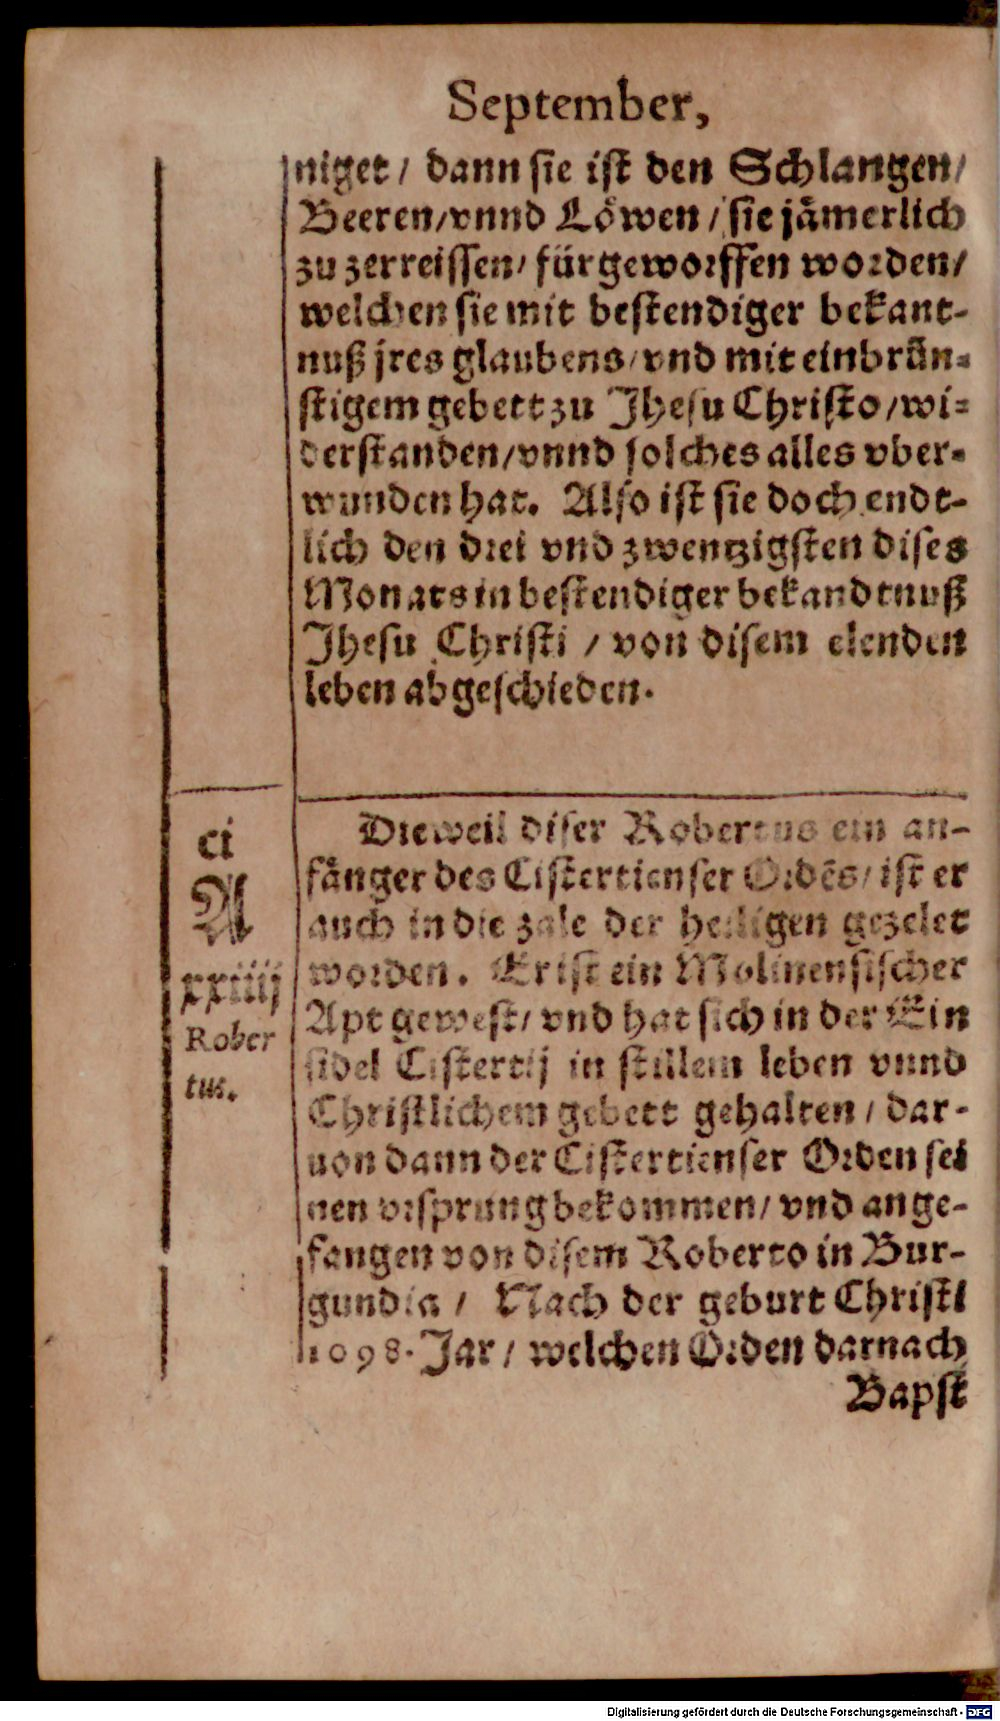 September,
niget / dann sie ist den Schlangen/
Beeren/vnnd Löwen / sie jämerlich
zu zerreissen/ fürgeworffen worden/
welchen sie mit bestendiger bekant-
nuß jres glaubens/ vnd mit einbrün-
stigem gebett zu Jhesu Christo/wi-
derstanden/vnnd solches alles vber-
wunden hat. Also ist sie doch endt-
lich den drei vnd zwentzigsten dises
Monats in bestendiger bekandtnuß
Jhesu Christi / von disem elenden
leben abgeschieden.
ci
A
xxiiij
Rober
tus.
Dieweil diser Robertus ein an-
fänger des Cistertienser Ordẽs/ ist er
auch in die zale der heiligen gezelet
worden. Er ist ein Molinensischer
Apt gewest/ vnd hat sich in der Ein
sidel Cistertij in stillem leben vnnd
Christlichem gebett gehalten / dar-
uon dann der Cistertienser Orden sei
nen vrsprung bekommen/ vnd ange-
fangen von disem Roberto in Bur-
gundia / Nach der geburt Christi
1098. Jar / welchen Orden darnach
Bapst
Digitalisierung gefördert durch die Deutsche Forschungsgemeinschaft - DFG